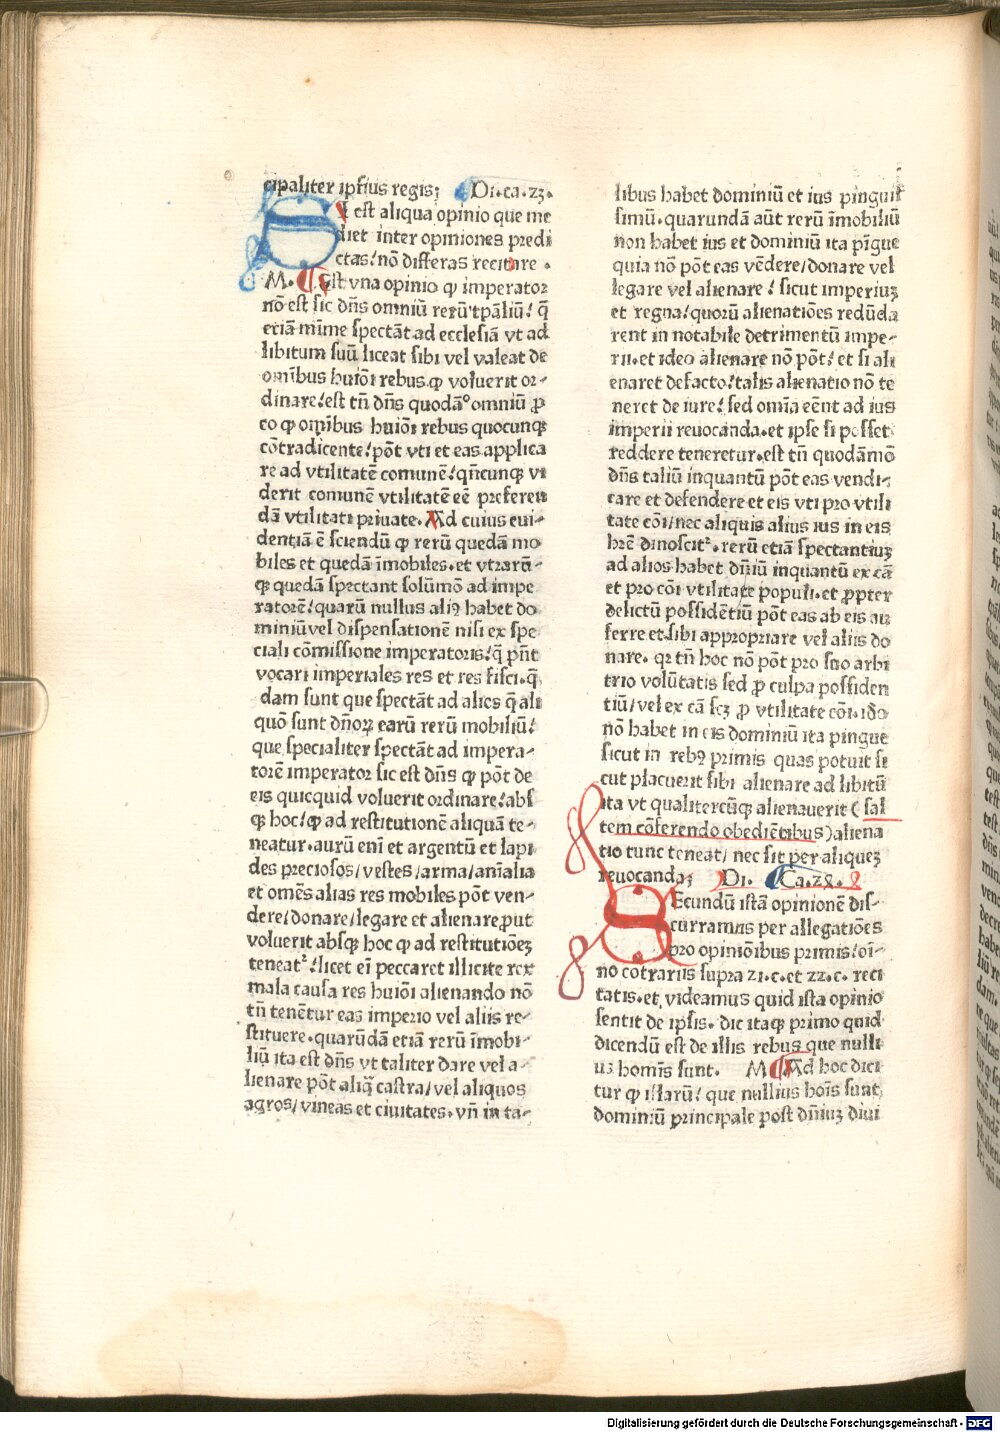 cipaliter ipſius regis; Di.ca.23.
SI eſt aliqua opinio que me
diet inter opiniones predi
ctas/ nō differas recitare .
M. Eſt vna opinio ꝙ imperator
nō eſt ſic dn̄s omniū rerū tp̄aliū/ q̄
etiā mīme ſpectāt ad eccleſiā vt ad
libitum ſuū liceat ſibi vel valeat de
omībus huiōi rebus.ꝙ voluerit or-
dinare/ eſt tn̄ dn̄s quodāº omniū ꝓ
eo ꝙ oīnibus huiōi rebus quocunqꝫ
cōtradicente/ pōt vti et eas applica
re ad vtilitatē comunē/ qn̄cunqꝫ vi
derit comunē vtilitatē eē preferen
dā vtilitati priuate. Ad cuius eui-
dentiā ē ſciendū ꝙ rerū quedā mo
biles et quedā īmobiles.et vtrarū-
qꝫ quedā ſpectant ſolūmō ad impe
ratorē/ quarū nullus aliꝰ habet do
miniū vel diſpenſationē niſi ex ſpe
ciali cōmiſſione imperatoris/ q̄ pn̄t
vocari imperiales res et res fiſci.q̄
dam ſunt que ſpectāt ad alios q̄ ali
quō ſunt dn̄oꝝ earū rerū mobiliū/
que ſpecialiter ſpectāt ad impera-
torē imperator ſic eſt dn̄s ꝙ pōt de
eis quicquid voluerit ordinare/ abſ
qꝫ hoc/ ꝙ ad reſtitutionē aliquā te-
neatur.aurū enī et argentū et lapi
des precioſos/ veſtes/ arma/ aīalia
et omēs alias res mobiles pōt ven-
dere/ donare/ legare et alienare,put
voluerit abſqꝫ hoc ꝙ ad reſtitutiōeꝫ
teneat᷒ / licet ei peccaret illicite rex
mala cauſa res huiōi alienando nō
tn̄ tenētur eas imperio vel aliis re-
ſtituere.quarūdā etiā rerū īmobi-
liū ita eſt dn̄s vt taliter dare vel a-
lienare pōt aliq̄ caſtra/ vel aliquos
agros/ vineas et ciuitates.vn̄ in ta-
libus habet dominiū et ius pinguiſ
ſimū.quarundā aūt rerū īmobiliū
non habet ius et dominiū ita pīgue
quia nō pōt eas vēdere/ donare vel
legare vel alienare / ſicut imperiuꝫ
et regna/ quorū alienatiōes redūda
rent in notabile detrimentū impe-
rii.et ideo alienare nō pōt/ et ſi ali
enaret defacto/ talis alienatio nō te
neret de iure/ ſed om̄ia eēnt ad ius
imperii reuocanda.et ipſe ſi poſſet
reddere teneretur.eſt tn̄ quodāmō
dn̄s taliū inquantū pōt eas vendi-
care et defendere et eis vti pro vtili
tate cōi/ nec aliquis alius ius in eis
hr̄e dinoſcit᷒. rerū etiā ſpectantiuꝫ
ad alios habet dn̄iū inquantū ex cā
et pro cōi vtilitate populi.et ꝓpter
delictū poſſidētiū pōt eas ab eis au
ferre et ſibi appropriare vel aliis do
nare. qꝛ tn̄ hoc nō pōt pro ſuo arbi
trio volūtatis ſed ꝓ culpa poſſiden
tiū/ vel ex cā ſcꝫ ꝓ vtilitate cōi.ido
nō habet in eis dominiū ita pingue
ſicut in rebꝰ primis quas potuit ſi
cut placuerit ſibi alienare ad libitū
ita vt qualitercūqꝫ alienauerit ( ſal
tem cōferendo obediētibus ) aliena
tio tunc teneat/ nec ſit per aliqueꝫ
reuocanda; Di. Ca.24.
SEcundū iſtā opinionē diſ-
curramus per allegatiōes
pro opiniōibus primis/ oī-
no cotrariis ſupra 21.c.et 22.c. reci
tatis.et videamus quid iſta opinio
ſentit de ipſis. dic itaqꝫ primo quid
dicendū eſt de illis rebus que nulli
us homīs ſunt. M. Ad hoc dici
tur ꝙ illarū/ que nullius hoīs ſunt
dominiū principale poſt dn̄iuꝫ diui
Digitalisierung gefördert durch die Deutsche Forschungsgemeinschaft - DFG